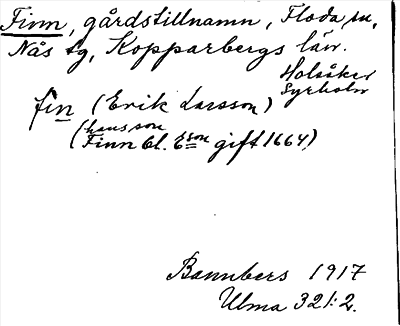 Finn, gårdstillnamn, Floda sn,
Nås tg, Kopparbergs län.
Holsåker
Syrholn
fin (Erik Larsson)
(hans son
Finn Ol. Eson gift 1664)
Bannbers 1917
Ulma 321:2.